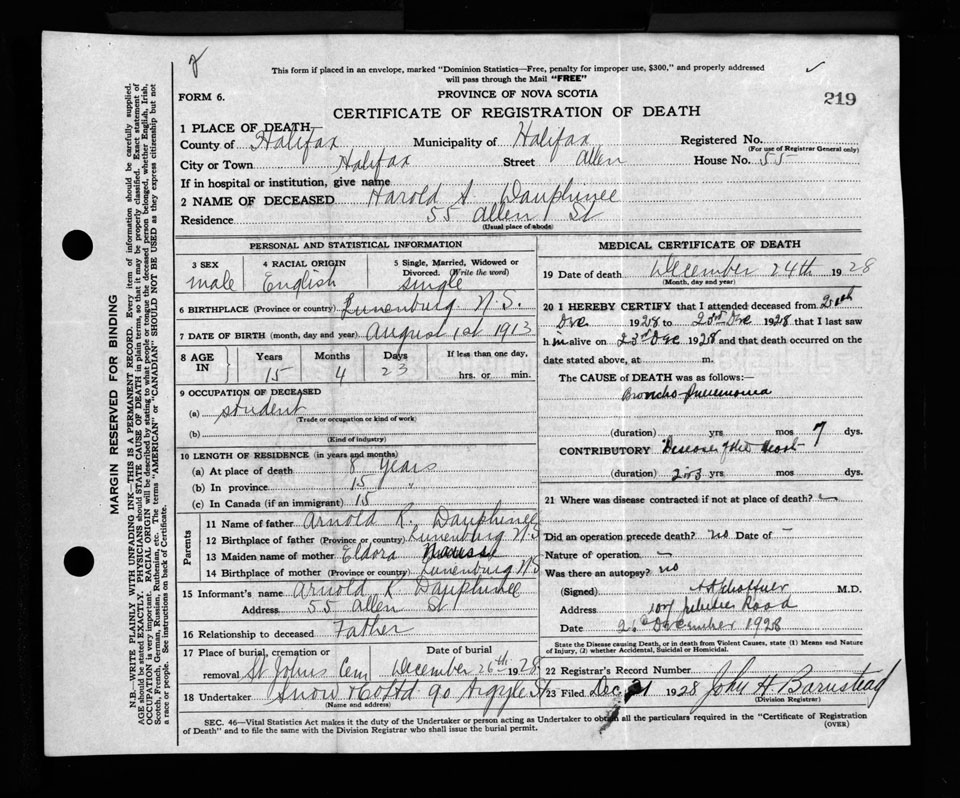 This form if placed in an envelope, marked "Dominion Statistics—Free, penalty for improper use, $300," and properly addressed
will pass through the Mail "FREE"
FORM 6.
PROVINCE OF NOVA SCOTIA
219
CERTIFICATE OF REGISTRATION OF DEATH
1 PLACE OF DEATH
County of Halifax Municipality of Halifax Registered No.
(For use of Registrar General only)
City or Town Halifax Street Allen House No. 55
If in hospital or institution, give name
2 NAME OF DECEASED Harold A Dauphinee
Residence 55 Allen St
(Usual place of abode)
PERSONAL AND STATISTICAL INFORMATION
3 SEX 4 RACIAL ORIGIN 5 Single, Married, Widowed or
Divorced. (Write the word)
male English single
6 BIRTHPLACE (Province or country) Lunenburg N.S.
7 DATE OF BIRTH (month, day and year) August 1st 1913
8 AGE IN Years Months Days If less than one day,
15 4 23 hrs. or min.
9 OCCUPATION OF DECEASED
(a) student
(Trade or occupation or kind of work)
(b)
(Kind of industry)
10 LENGTH OF RESIDENCE (in years and months)
(a) At place of death 8 years
(b) In province 15 "
(c) In Canada (if an immigrant) 15
Parents
11 Name of father Arnold R. Dauphinee
12 Birthplace of father (Province or country) Lunenburg N S
13 Maiden name of mother Eldora
14 Birthplace of mother (Province or country) Lunenburg N S
15 Informant's name Arnold R Dauphinee
Address 55 Allen St
16 Relationship to deceased Father
17 Place of burial, cremation or Date of burial
removal St Johns Cem December 26th 1928
18 Undertaker Snow & Co Ltd 90 Argyle St
(Name and address)
MEDICAL CERTIFICATE OF DEATH
19 Date of death December 24th 1928
(Month, day and year)
20 I HEREBY CERTIFY that I attended deceased from
Dec 1928 to 23rd Dec 1928 that I last saw
h im alive on 23rd Dec 1928 and that death occurred on the
date stated above, at m.
The CAUSE of DEATH was as follows:—
Broncho-pneumonia
(duration) yrs mos 7 dys.
CONTRIBUTORY Disease of the Heart
(duration) 2 or 3 yrs mos dys.
21 Where was disease contracted if not at place of death? —
Did an operation precede death? no Date of —
Nature of operation —
Was there an autopsy? no
(Signed) M.D.
Address Road
Date 26th December 1928
State the Disease causing Death, or in death from Violent Causes, state (1) Means and Nature
of Injury, (2) whether Accidental, Suicidal or Homicidal.
22 Registrar's Record Number
23 Filed Dec 1928 John H Barnstead
(Division Registrar)
SEC. 46—Vital Statistics Act makes it the duty of the Undertaker or person acting as Undertaker to obtain all the particulars required in the "Certificate of Registration
of Death" and to file the same with the Division Registrar who shall issue the burial permit.
(OVER)
MARGIN RESERVED FOR BINDING
N.B.—WRITE PLAINLY WITH UNFADING INK—THIS IS A PERMANENT RECORD. Every item of information should be carefully supplied.
AGE should be stated EXACTLY. PHYSICIANS should STATE CAUSE OF DEATH in plain terms, so that it may be properly classified. Exact statement of
OCCUPATION is very important. RACIAL ORIGIN will be described by stating to what people or tongue the deceased person belonged, whether English, Irish,
Scotch, French, German, Russian, Ruthenian, etc. The terms "AMERICAN" or "CANADIAN" SHOULD NOT BE USED as they express citizenship but not
a race or people. See instructions on back of Certificate.